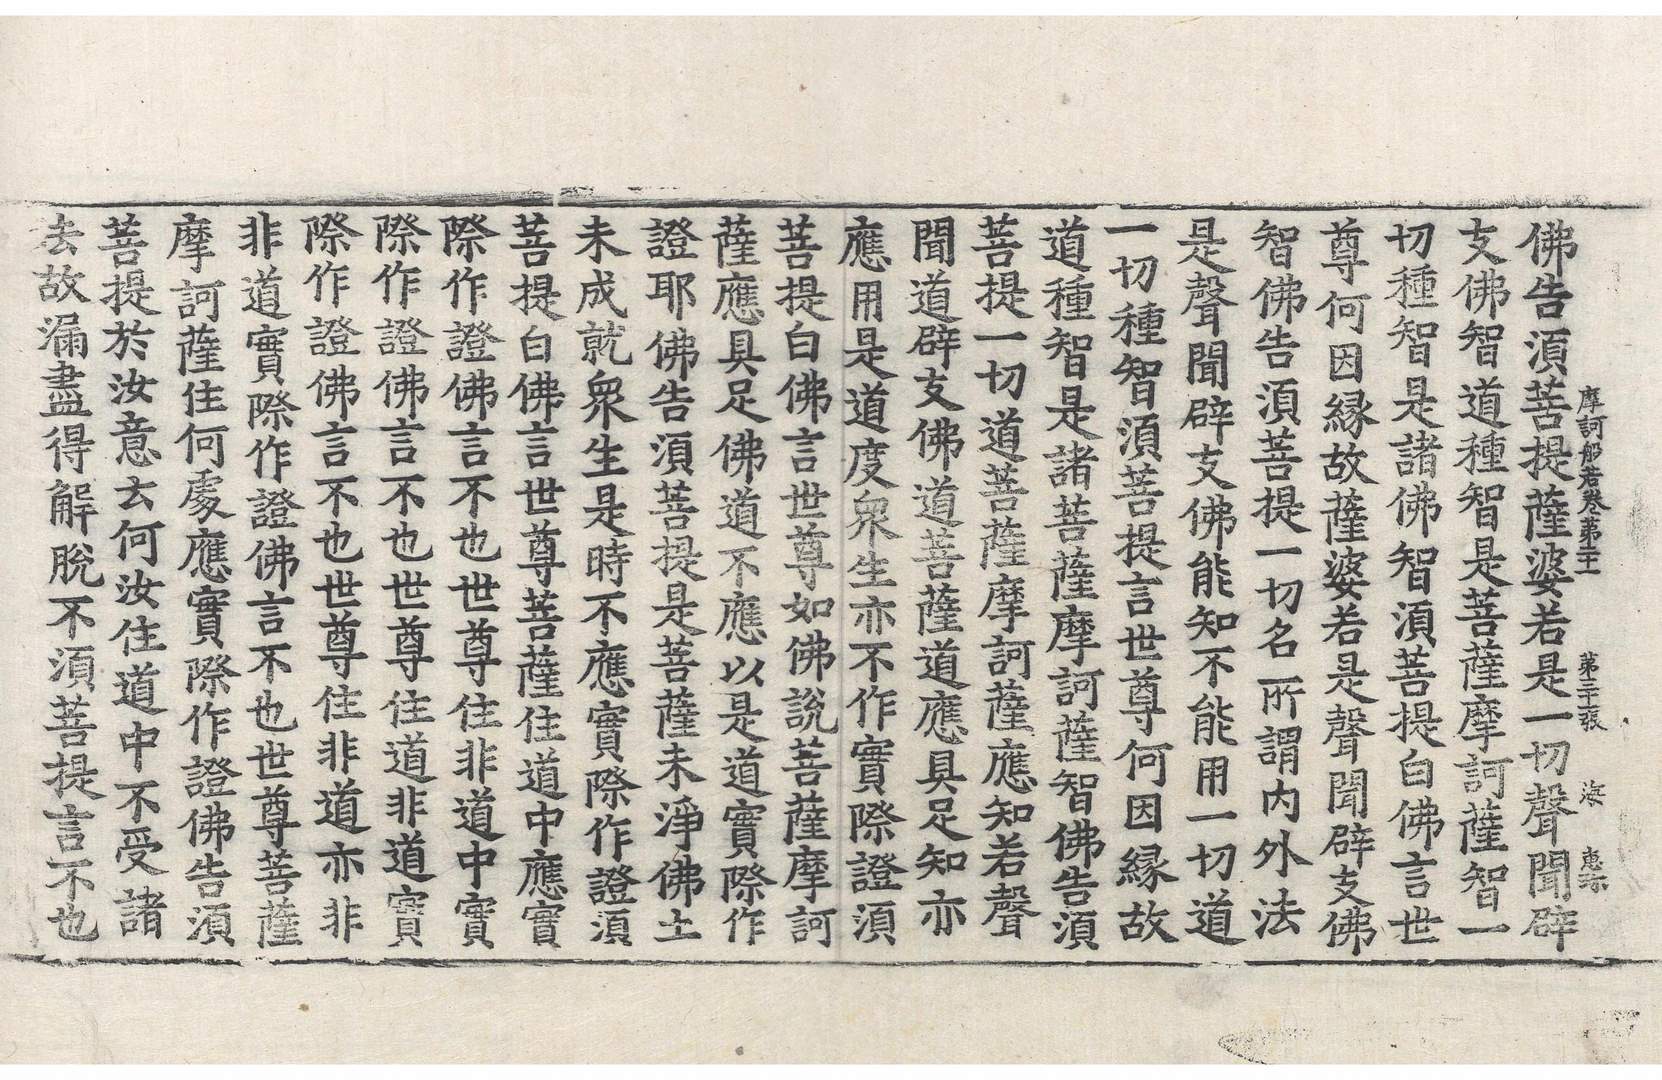 摩訶般若卷第二十一 第 張 海
佛告須菩提薩婆若是一切聲聞辟
支佛智道種智是菩薩摩訶薩智一
切種智是諸佛智須菩提白佛言世
尊何因縁故薩婆若是聲聞辟支佛
智佛告須菩提一切名所謂内外法
是聲聞辟支佛能知不能用一切道
一切種智須菩提言世尊何因縁故
道種智是諸菩薩摩訶薩智佛告須
菩提一切道菩薩摩訶薩應知若聲
聞道辟支佛道菩薩道應具足知亦
應用是道度衆生亦不作實際證須
菩提白佛言世尊如佛說菩薩摩訶
薩應具足佛道不應以是道實際作
證耶佛告須菩提是菩薩未淨佛土
未成就衆生是時不應實際作證須
菩提白佛言世尊菩薩住道中應實
際作證佛言不也世尊住非道中實
際作證佛言不也世尊住道非道實
際作證佛言不也世尊住非道亦非
非道實際作證佛言不也世尊菩薩
摩訶薩住何處應實際作證佛告須
菩提於汝意云何汝住道中不受諸
法故漏盡得解脫不須菩提言不也